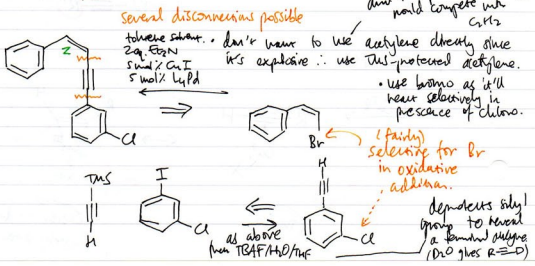 would compete with
C₂H₂
several disconnections possible
toluene solvent.
2eq. Et₃N
5 mol% CuI
5 mol% L₄Pd
• don't want to use acetylene directly since
it's explosive ∴ use TMS-protected acetylene.
• use bromo as it'll
react selectively in
presence of chloro.
Z
Cl
Br
(fairly)
selective for Br
in oxidative
addition.
TMS
H
I
Cl
as above
then TBAF/H₂O/THF
H
Cl
deprotects silyl
group to reveal
a terminal alkyne
(D₂O gives R≡D)